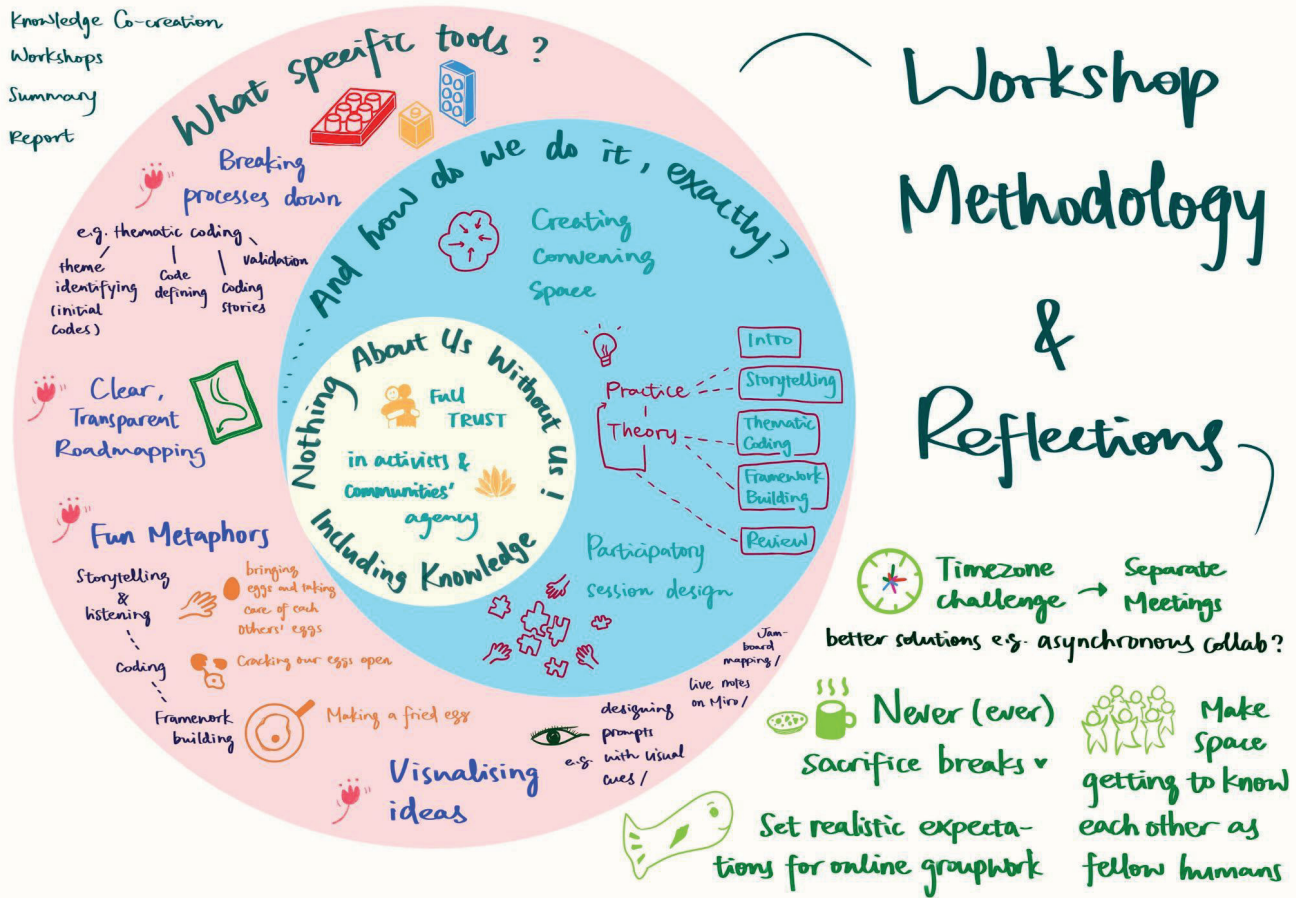 Knowledge Co-creation
Workshops
Summary
Report
Workshop
Methodology
&
Reflections
What specific tools?
Breaking
processes down
e.g. thematic coding
theme
identifying
(initial
codes)
Code
defining
Coding
Stories
validation
Clear,
Transparent
Roadmapping
Fun Metaphors
Storytelling
&
listening
bringing
eggs and taking
care of each
others' eggs
Coding
Cracking our eggs open
Framework
building
Making a fried egg
Visualising
ideas
designing
prompts
e.g. with visual
cues/
live notes
on Miro/
Jam-
board
mapping/
And how do we do it, exactly?
Creating
Convening
Space
Practice
Theory
Intro
Storytelling
Thematic
Coding
Framework
Building
Review
Participatory
session design
Nothing About Us Without Us!
Including Knowledge
Full
TRUST
in activists &
communities'
agency
Timezone
challenge
Separate
Meetings
better solutions e.g. asynchronous collab?
Never (ever)
sacrifice breaks
Make
space
getting to know
each other as
fellow humans
Set realistic expecta-
tions for online groupwork